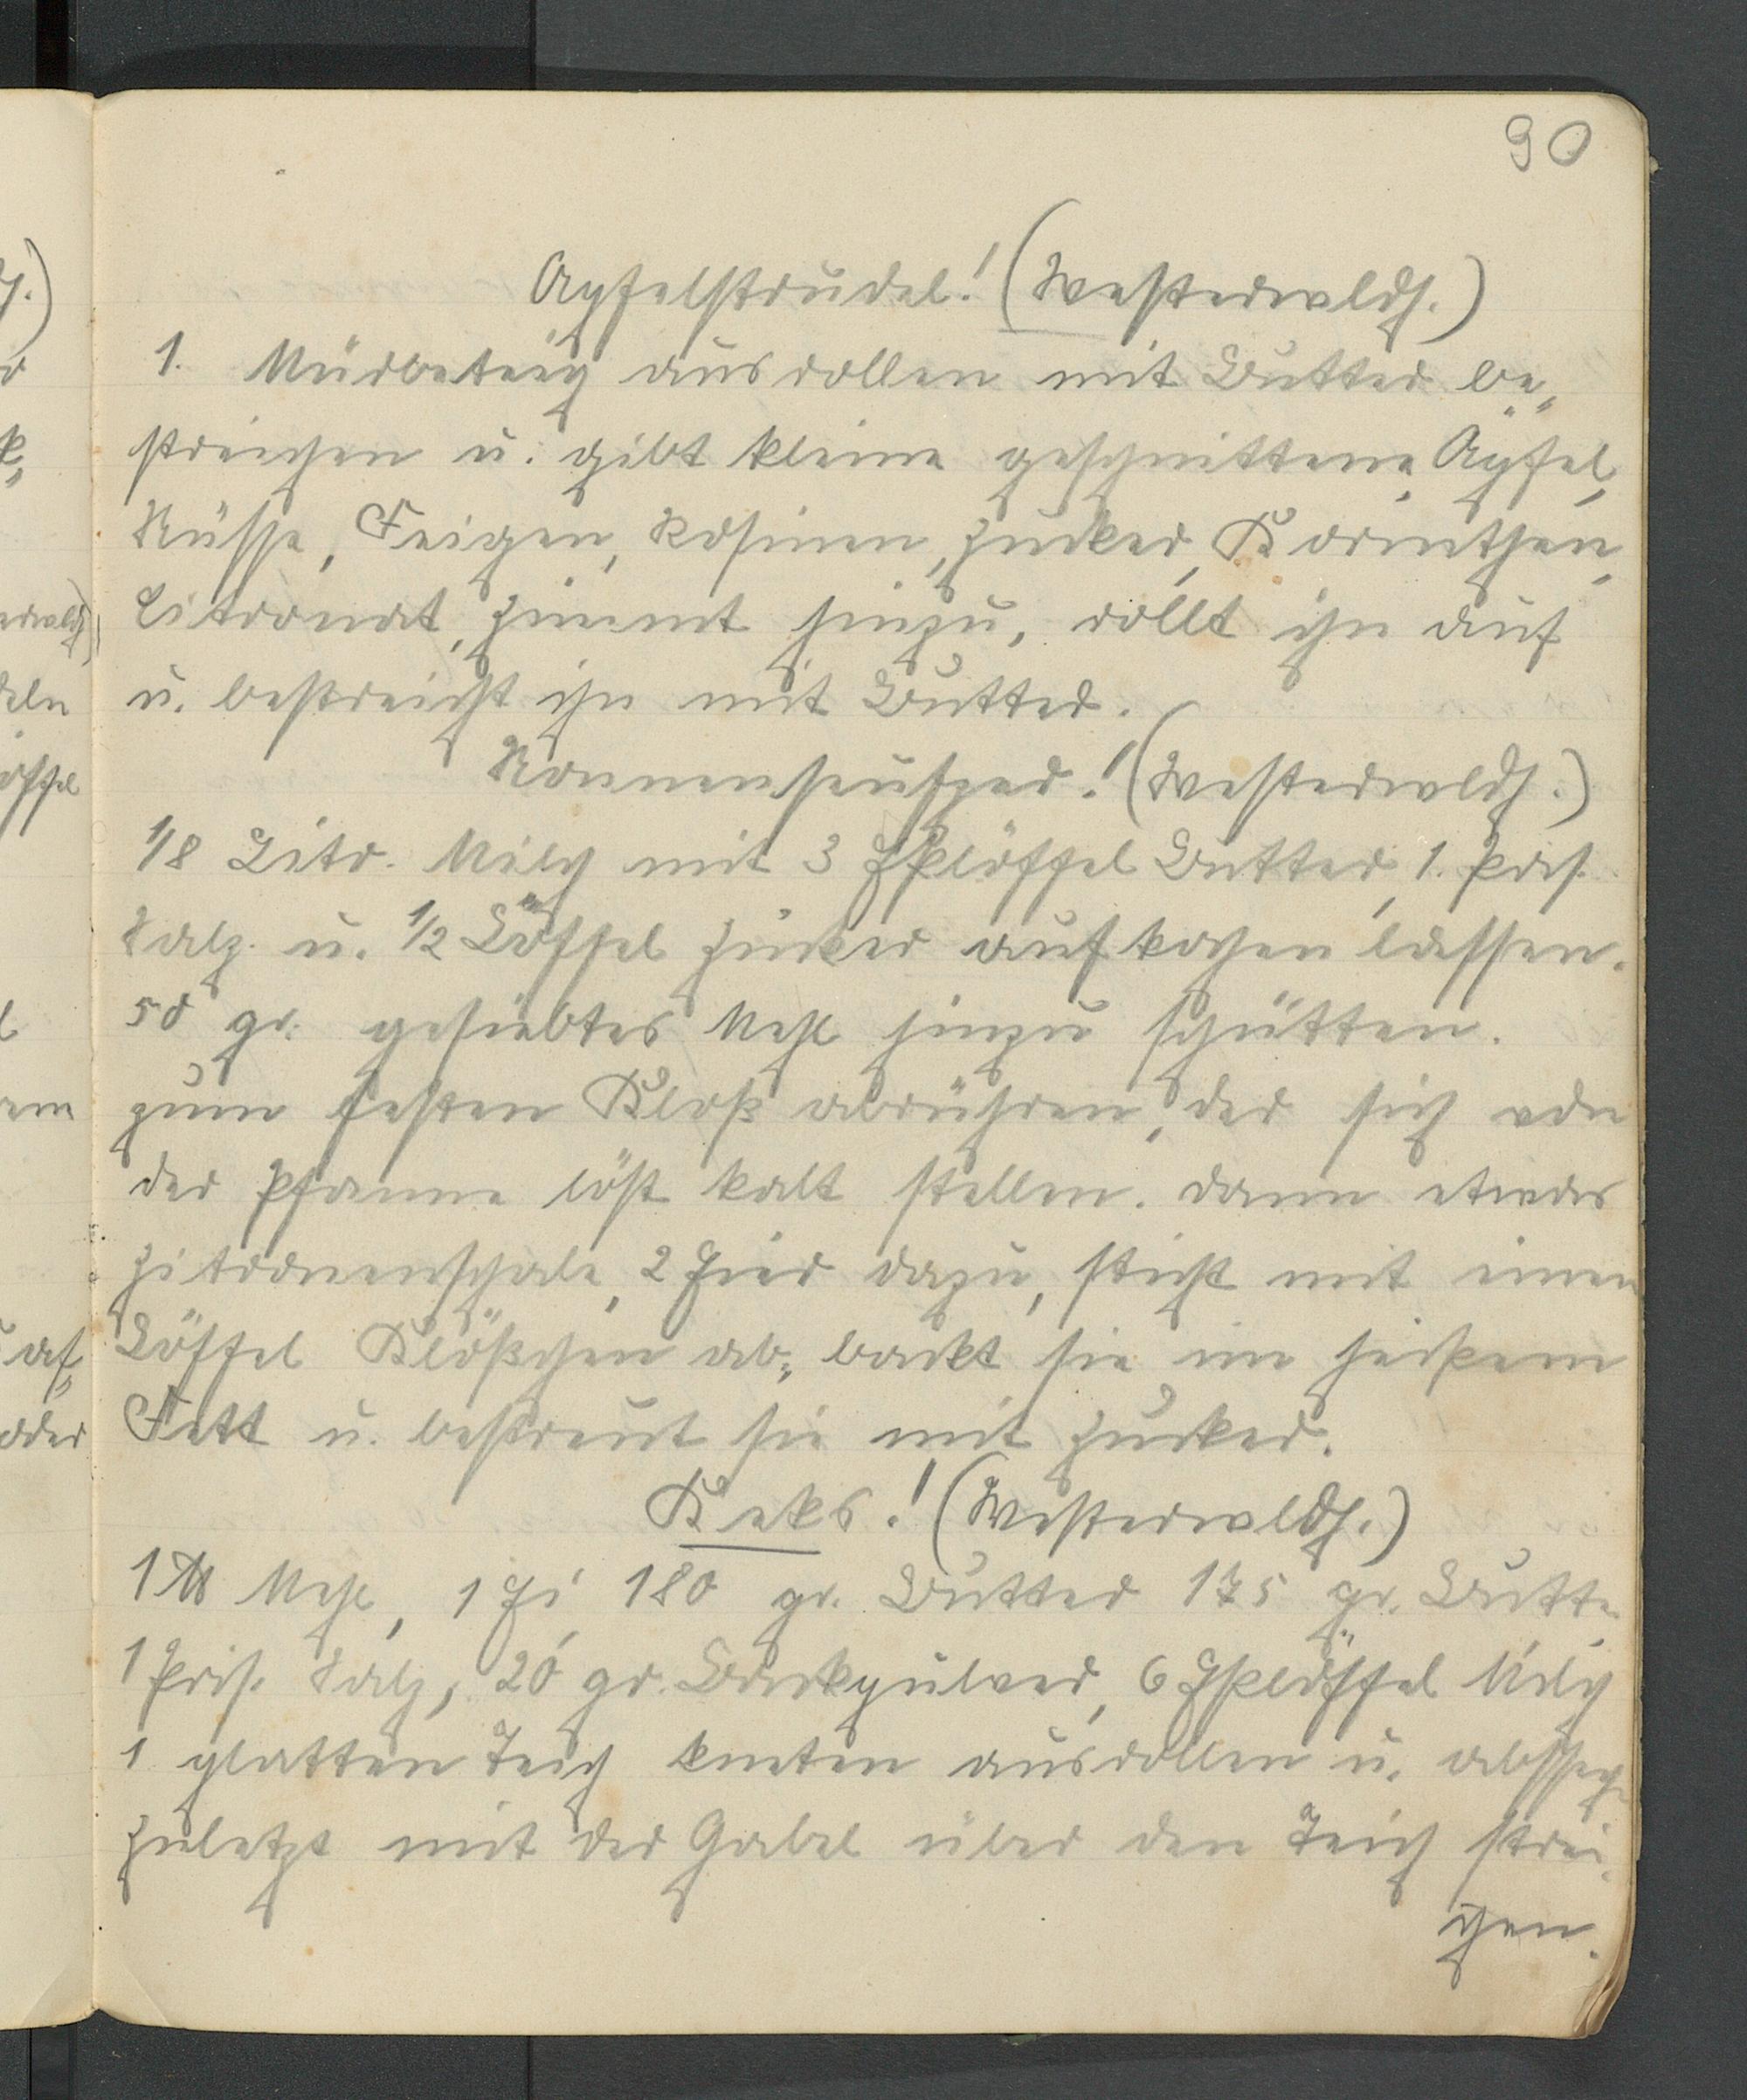 90
Apfelstrudel! (Westerwaldh.)
1. Mürbeteig ausrollen mit Butter be„
streichen u. gibt kleine geschnittene Äpfel,
Nüsse, Feigen, Rosinen, Zucker, Korinthen,
Citronat, Zimmt hinzu, rollt ihn auf
u. bestreicht ihn mit Butter.
Nonnenseufzer! (Westerwaldh.)
1/8 Litr. Milch mit 3 Eßlöffel Butter, 1. Pris.
Salz u. 1/2 Löffel Zucker aufkochen lassen.
50 gr. gesiebtes Mehl hinzu schütten.
zum festen Kloß abrühren, der sich von
der Pfanne löst kalt stellen. dann etwas
Zitronenschale, 2 Eier dazu, sticht mit einen
Löffel Klößchen ab„ backt sie im heißem
Fett u. bestreut sie mit Zucker.
Keks! (Westerwaldh.)
1 ℔ Mehl, 1 Ei, 180 gr. Butter 175 gr. Butte
1 Pris. Salz, 20 gr. Backpulver, 6 Eßlöffel Milch
1 glatten Teig kneten ausrollen u.
zuletzt mit der Gabel über den Teig strei„
chen.